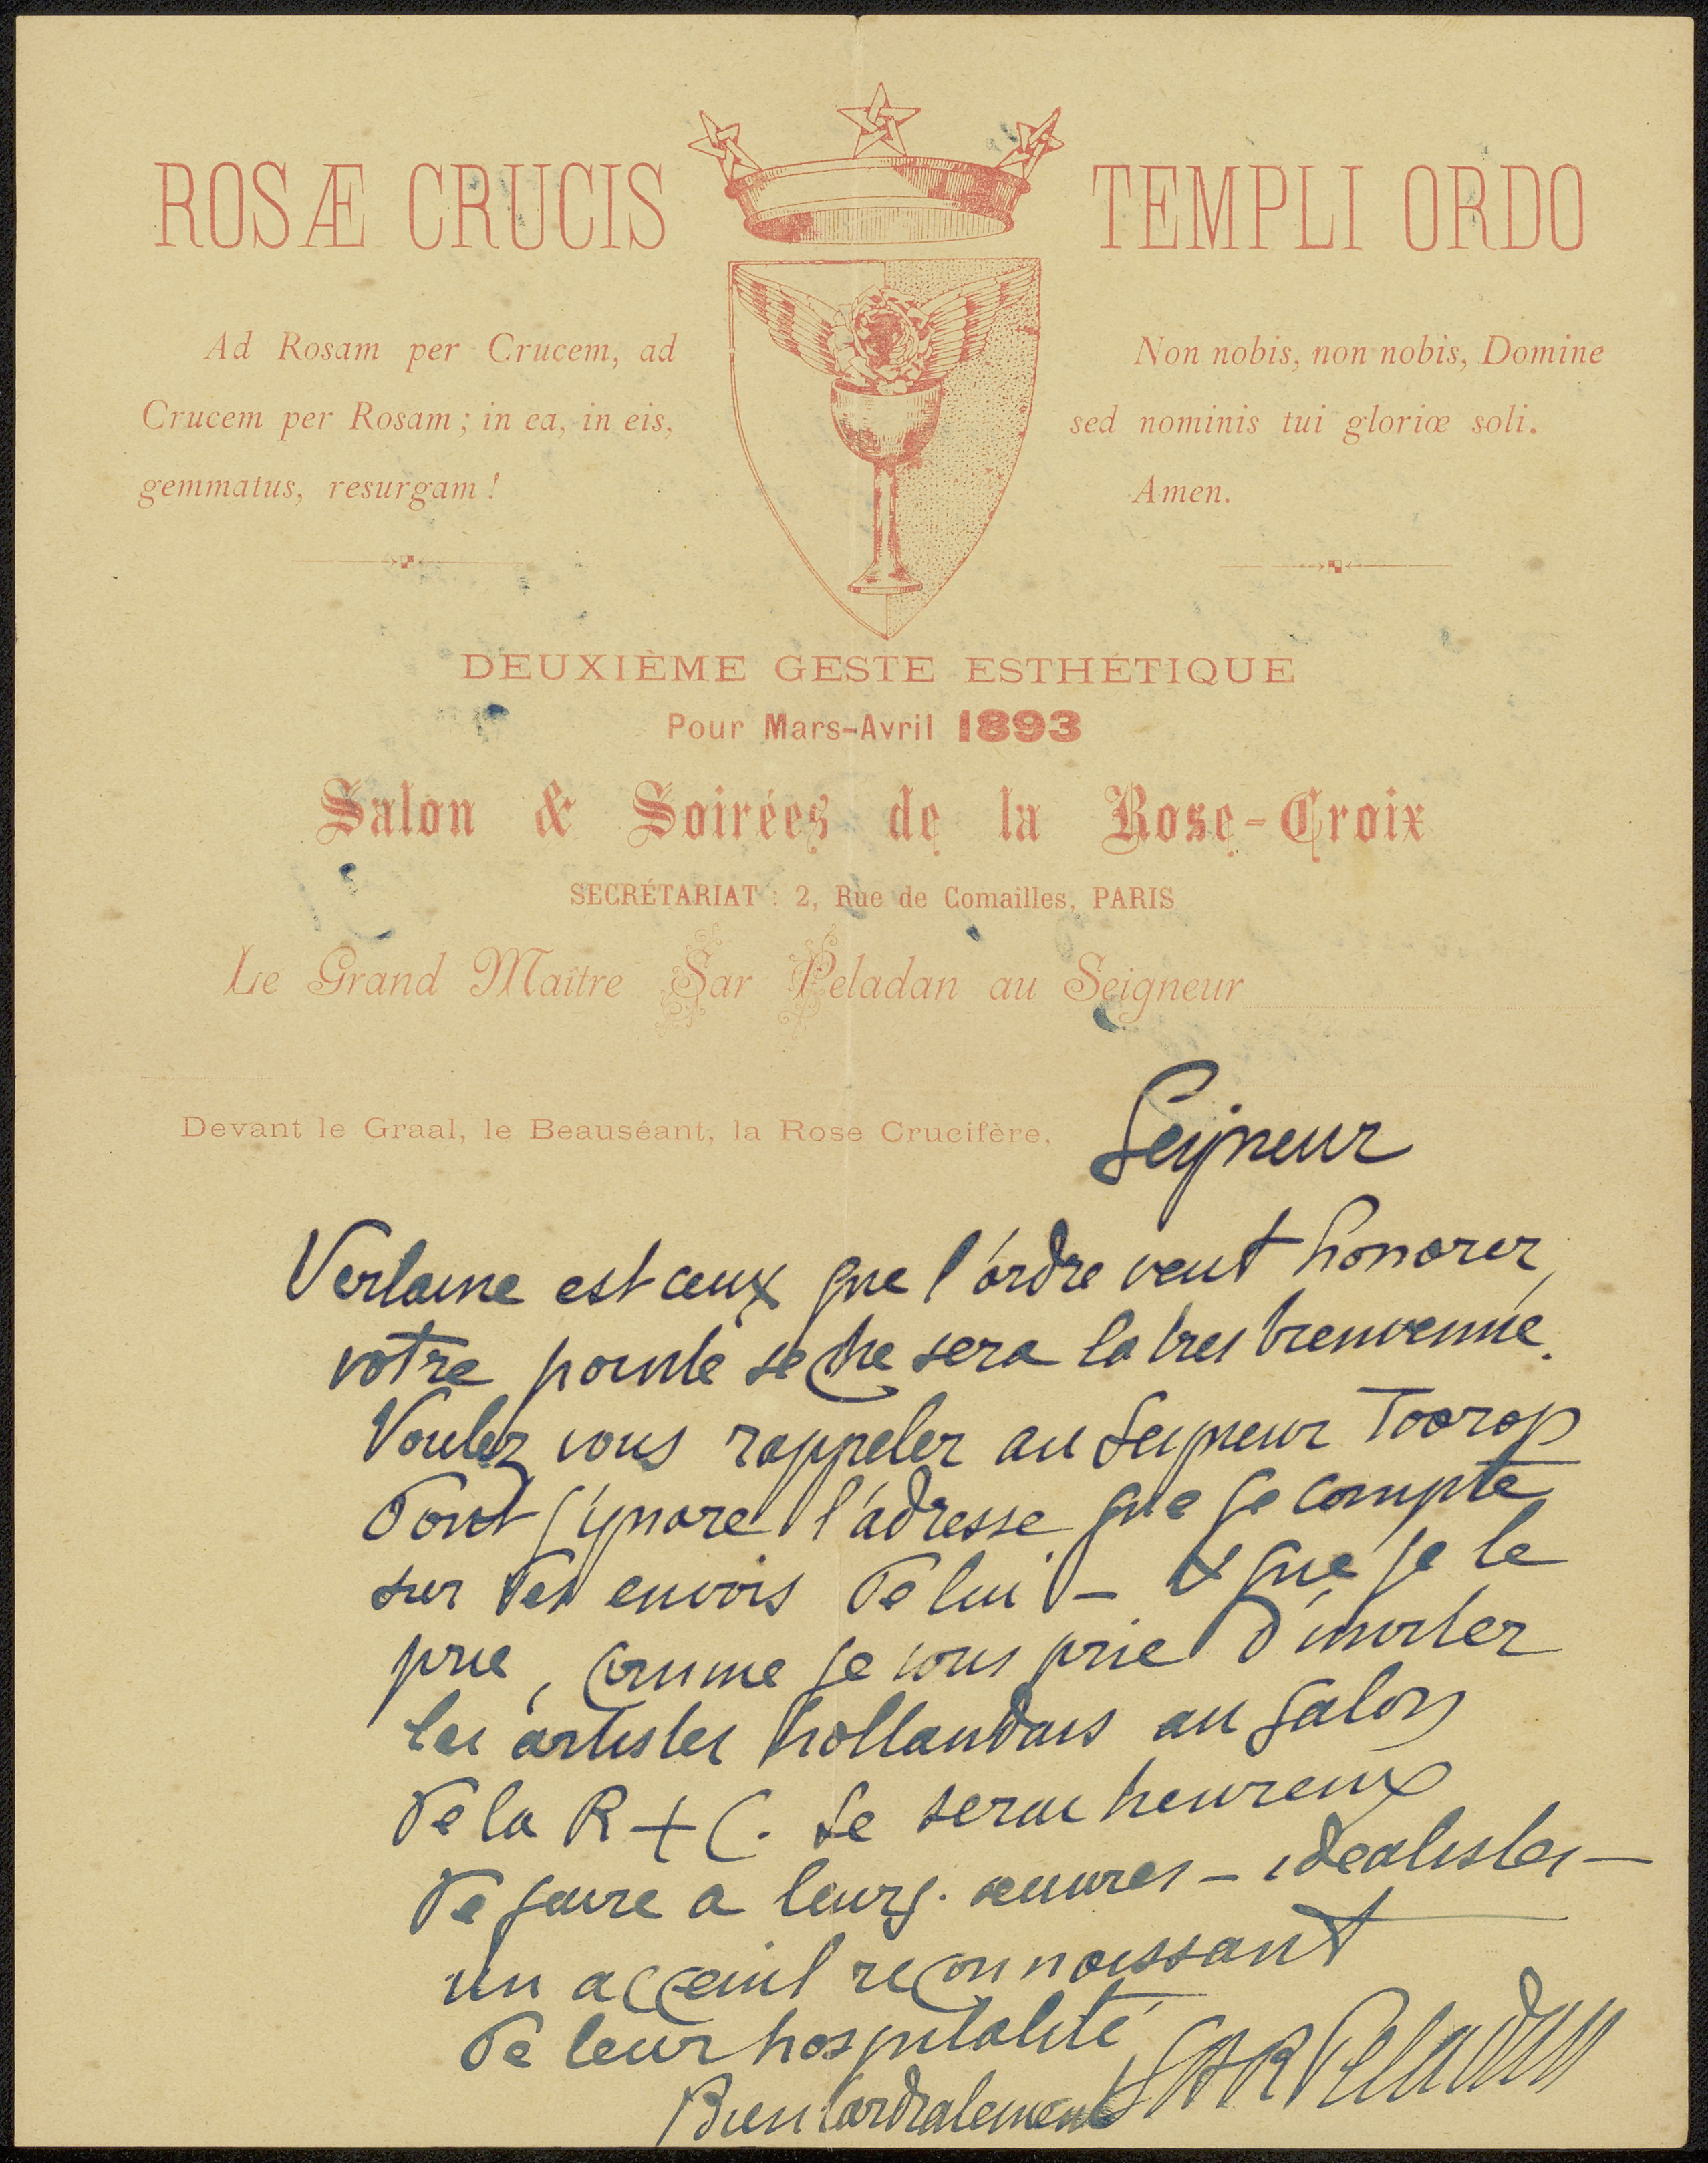 ROSÆ CRUCIS
TEMPLI ORDO
Ad Rosam per Crucem, ad
Crucem per Rosam; in ea, in eis,
gemmatus, resurgam!
Non nobis, non nobis, Domine
sed nominis tui gloriæ soli.
Amen.
DEUXIÈME GESTE ESTHÉTIQUE
Pour Mars-Avril 1893
Salon & Soirées de la Rose-Croix
SECRÉTARIAT : 2, Rue de Comailles, PARIS
Le Grand Maître Sar Peladan au Seigneur
Devant le Graal, le Beauséant, la Rose Crucifère,
Seigneur
Verlaine est ceux que l'ordre veut honorer,
votre pointe seche sera la tres bienvenue.
Voulez vous rappeler au Seigneur Toorop
dont j'ignore l'adresse que je compte
sur des envois de lui - & que je le
prie, comme je vous prie d'inviter
les artistes hollandais au salon
de la R + C. Je serai heureux
de faire a leurs œuvres - idealistes -
un acceuil reconnaissant
de leur hospitalité
Bien cordialement SAR Peladan